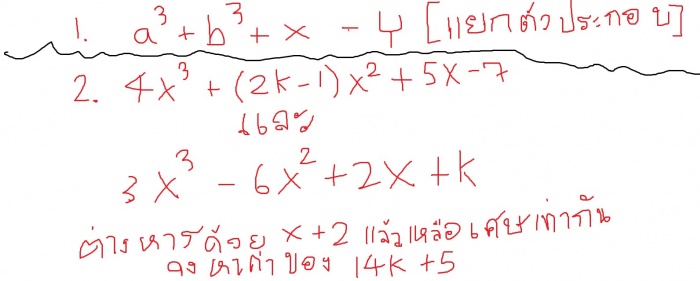 1. a³ + b³ + x - y [แยกตัวประกอบ]
2. 4x³ + (2k-1)x² + 5x - 7
และ
3x³ - 6x² + 2x + k
ต่างหารด้วย x+2 แล้วเหลือเศษเท่ากัน
จงหาค่าของ 14k +5